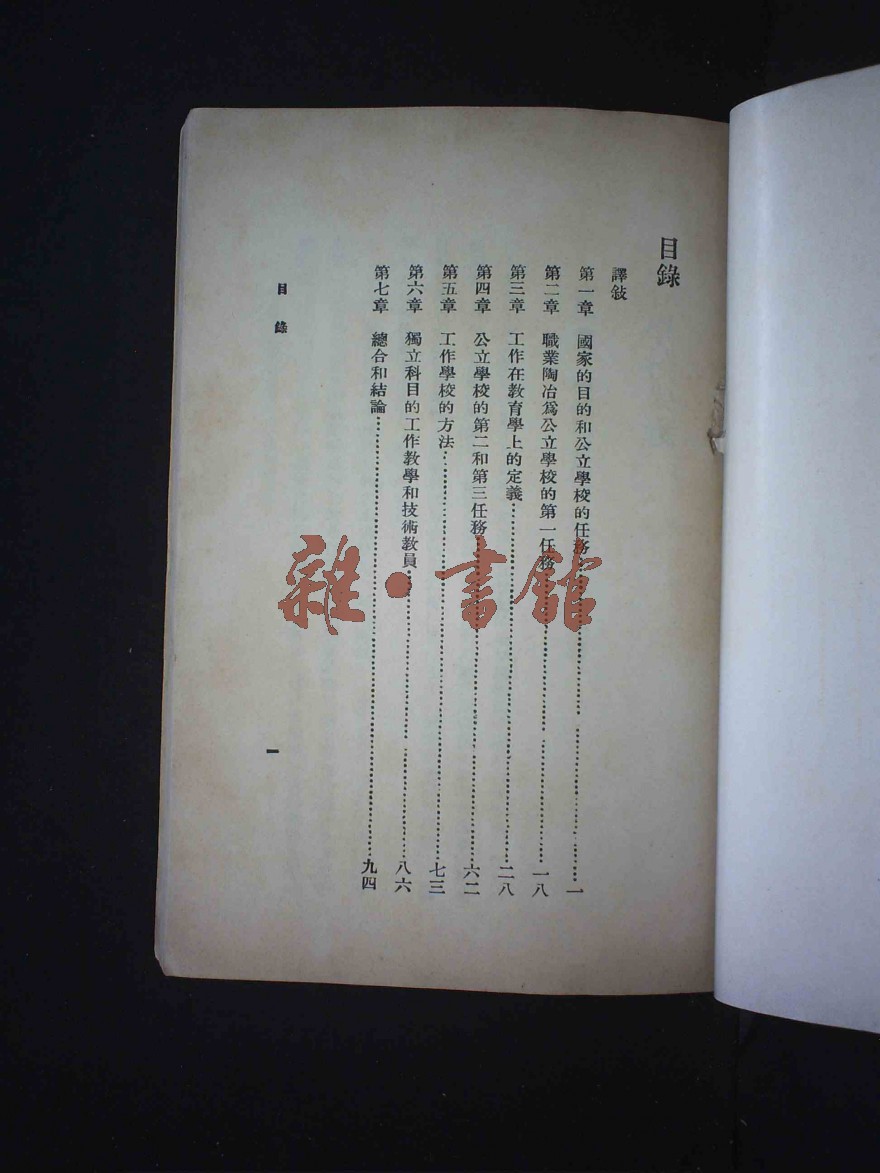 目錄
譯敍
第一章 國家的目的和公立學校的任務……一
第二章 職業陶冶爲公立學校的第一任務……一八
第三章 工作在教育學上的定義……二八
第四章 公立學校的第二和第三任務……六二
第五章 工作學校的方法……七三
第六章 獨立科目的工作教學和技術教員……八六
第七章 總合和結論……九四
目錄
一
雜·書館